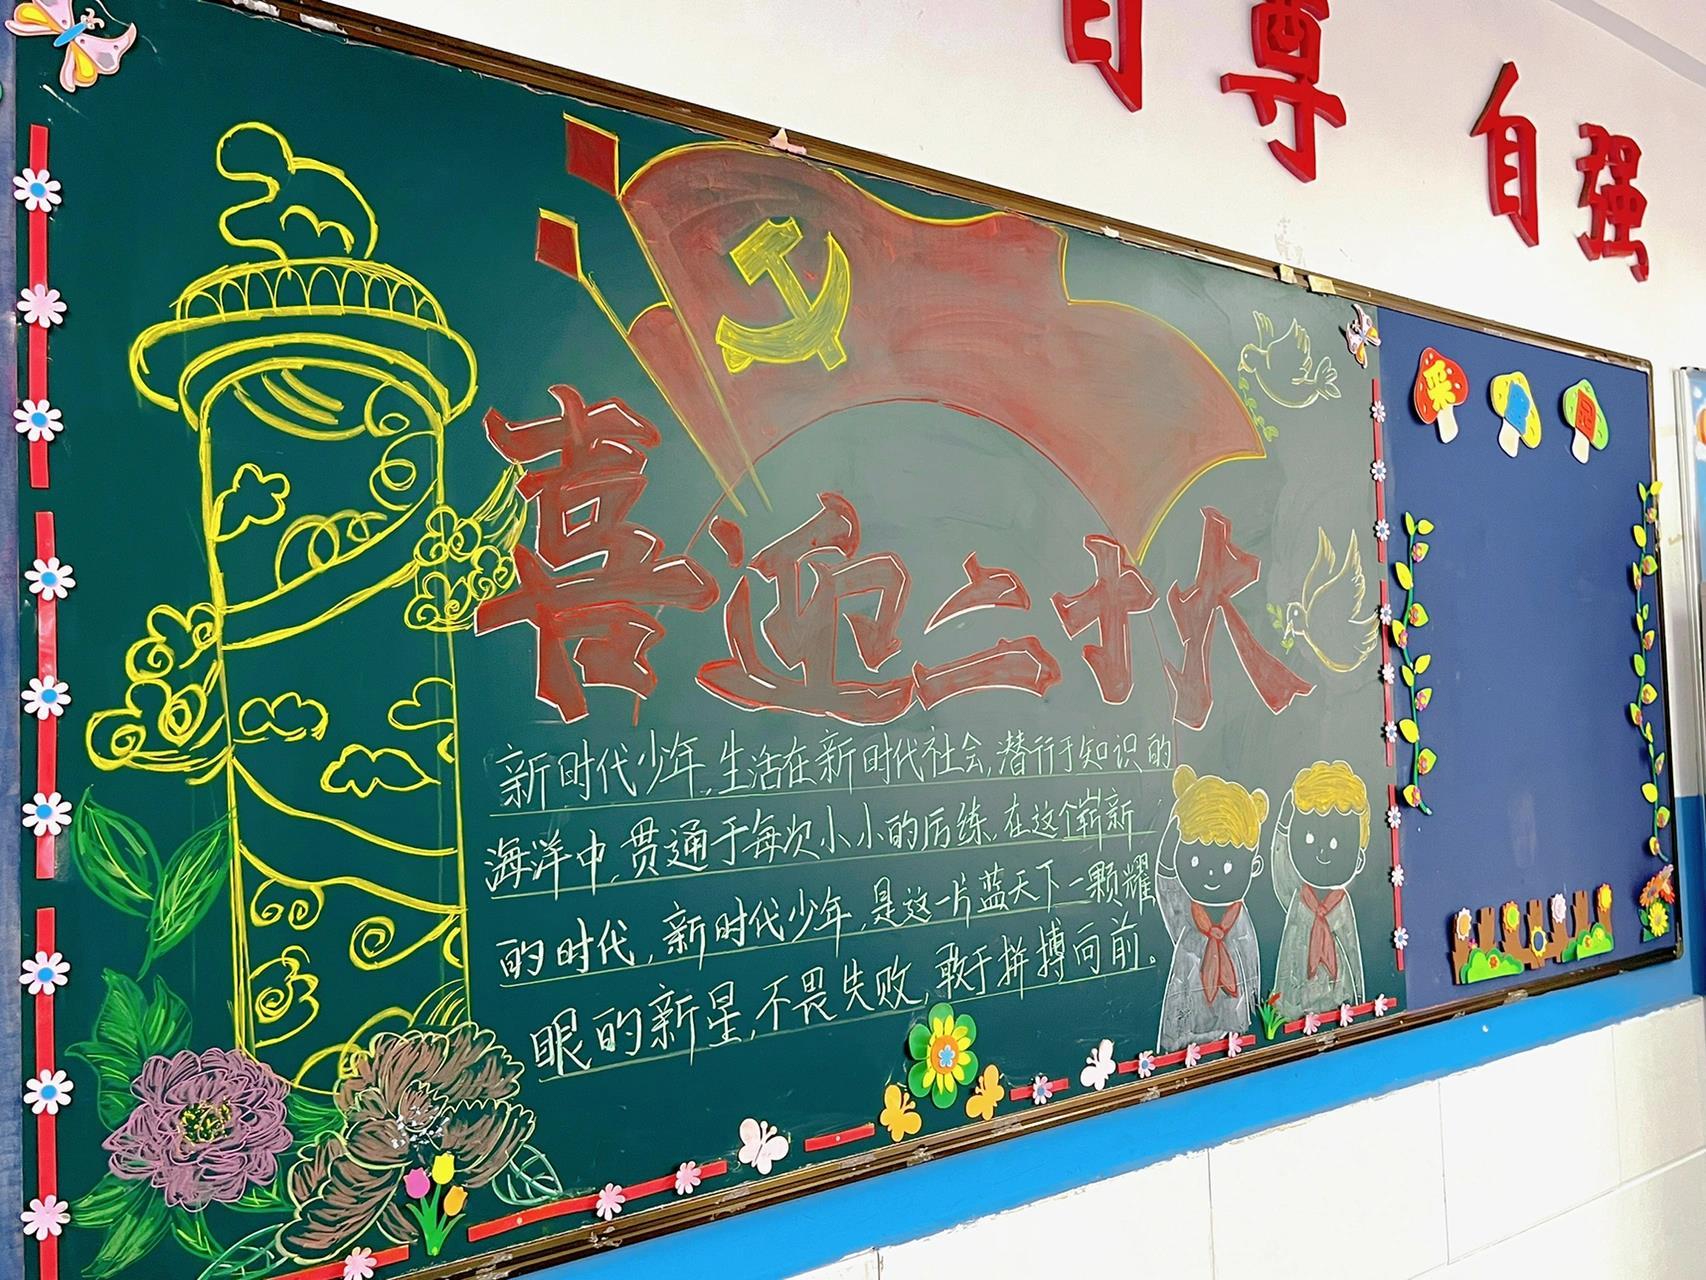 自尊 自强
喜迎二十大
新时代少年,生活在新时代社会,潜行于知识的
海洋中,贯通于每次小小的历练,在这个崭新
的时代,新时代少年,是这一片蓝天下一颗耀
眼的新星,不畏失败,敢于拼搏向前。